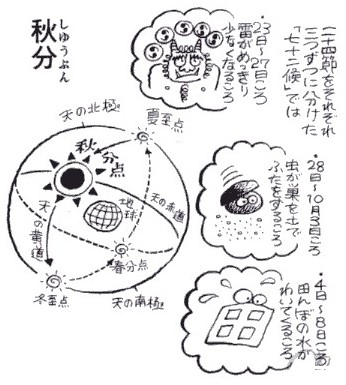 しゅうぶん
秋分
二十四節をそれぞれ
三つずつに分けた
「七十二候」では
・
23日〜27日ごろ
雷がめっきり
少なくなるころ
・
28日〜10月3日ごろ
虫が巣を土で
ふたをするころ
・
4日〜8日ごろ
田んぼの水が
わいてくるころ
天の北極
夏至点
秋分点
天の赤道
地球
天の黄道
春分点
冬至点
天の南極